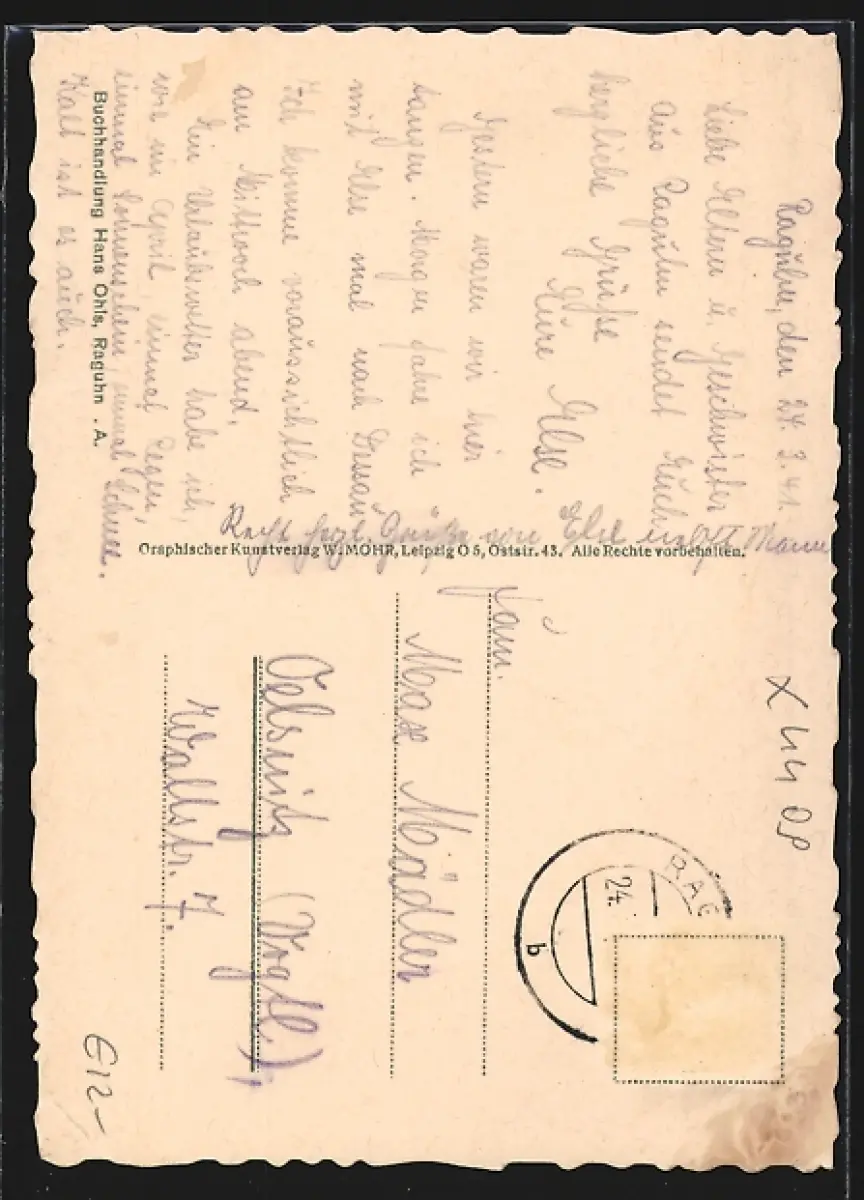 Raguhn, den 24. 3. 41.
Liebe Eltern u. Geschwister
Aus Raguhn sendet Euch
herzliche Grüße
Eure Else.
Gestern waren wir hier
tanzen. Morgen fahre ich
mit Else mal nach Dessau
Ich komme voraussichtlich
am Mittwoch abend.
Ein Urlaubswetter habe ich,
wie im April, einmal Regen,
einmal Sonnenschein, einmal Schnee.
Kalt ist es auch.
Buchhandlung Hans Ohls, Raguhn . A.
Recht herzl. Grüße von Else
Graphischer Kunstverlag W. MOHR, Leipzig O 5, Oststr. 43. Alle Rechte vorbehalten.
Fam.
Max Mädler
Oelsnitz (Vogtl.)
Wallstr. 7.
X 44 OP
RAG
24.
b
€12-